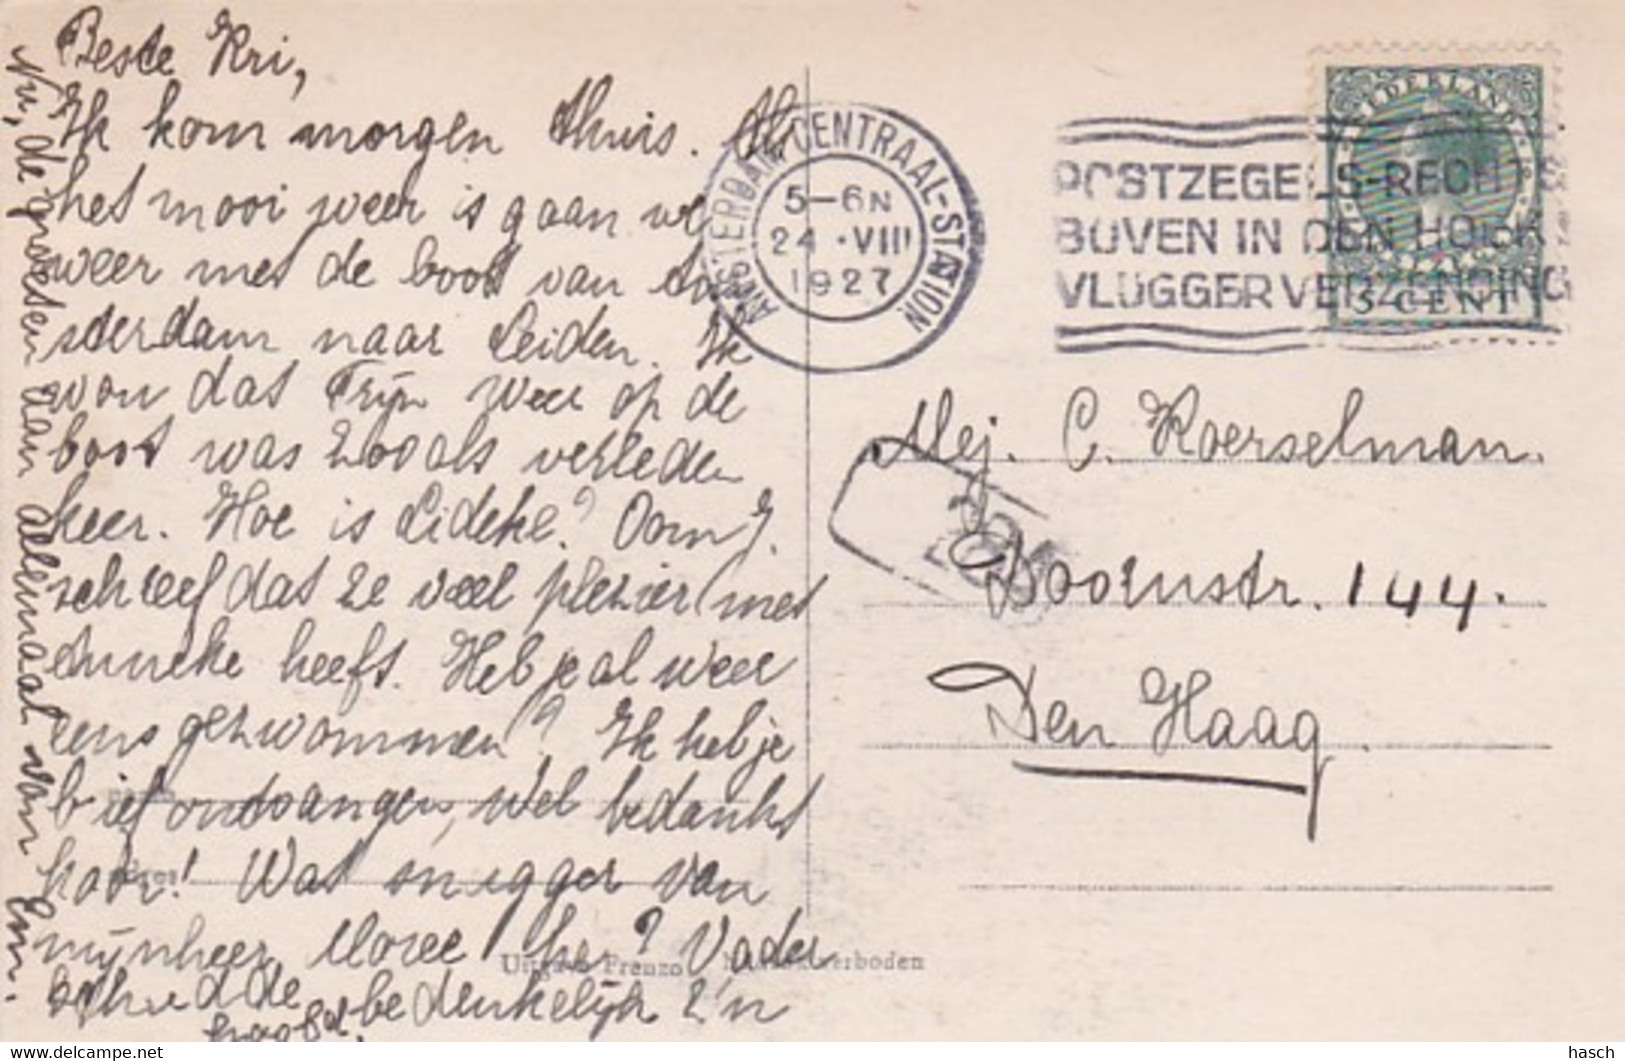 Beste Kri,
Ik kom morgen thuis. Als
het mooi weer is gaan we
weer met de boot van Am
sterdam naar Leiden. Ik
wou dat Trijn weer op de
boot was zooals verleden
keer. Hoe is Lideke? Oom J.
schreef dat ze veel plezier met
Anneke heeft. Heb je al weer
eens gezwommen? Ik heb je
brief ontvangen, wel bedankt
hoor! Wat snugger van
mijnheer Moree he? Vader
schudde bedenkelijk z'n
hoofd.
Nu, de groeten aan allemaal van
Em.
AMSTERDAM CENTRAAL-STATION
5-6N
24 .VIII
1927
POSTZEGELS-RECHTS
BOVEN IN DEN HOEK
VLUGGER VERZENDING
NEDERLAND
5 CENT
Mej. C. Koerselman.
Doornstr. 144.
Den Haag
Uitgave Frenzo Nadruk verboden
hasch